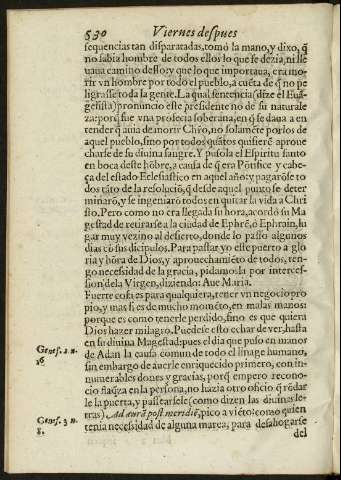 530 Viernes despues
sequencias tan disparatadas, tomò la mano, y dixo, q̃
no sabia hombre de todos ellos lo que se dezia, ni lle
uaua camino desso: y que lo que importaua, era mo-
rir vn hombre por todo el pueblo, a cueta de q̃ no pe
ligrasse toda la gente. La qual sentencia (dize el Euã-
gelista) pronuncio este presidente no de su naturale
za: porq̃ fue vna profecia soberana, en q̃ se daua a en
tender q̃ auia de morir Chr̃o, no solamẽte por los de
aquel pueblo, sino por todos quãtos quisierẽ aproue
charse de su diuina sangre. Y pusola el Espiritu santo
en boca deste hõbre, a causa de q̃ era Põtifice y cabe-
ça del estado Eclesiastico en aquel año: y pagarõse to
dos tãto de la resoluciõ, q̃ desde aquel punto se deter
minarõ, y se ingeniarõ todos en quitar la vida a Chri
sto. Pero como no era llegada su hora, acordò su Ma
gestad de retirarse a la ciudad de Ephrẽ, ò Ephrain, lu
gar muy vezino al desierto, donde lo passò algunos
dias cõ sus dicipulos. Para passar yo este puerto a glo
ria y hõra de Dios, y aprouechamiẽto de todos, ten-
go necessidad de la gracia, pidamosla por interces-
sion de la Virgen, diziendo: Aue Maria.
Fuerte cosa es para qualquiera, tener vn negocio pro
pio, y mas si es de mucho momẽto, en malas manos:
porque es como tenerle perdido, sino es que quiera
Dios hazer milagro. Puedese esto echar de ver, hasta
en su diuina Magestad: pues el dia que puso en manos
Genes. 2 n. de Adan la causa comun de todo el linage humano,
16. sin embargo de auerle enriquecido primero, con in-
numerables dones y gracias, porq̃ empero recono-
cio flaq̃za en la persona, no hazia otro oficio q̃ rõdar
le la puerta, y passearsele (como dizen las diuinas le-
Genes. 3 n. tras) Ad aurã post meridiẽ, pico a viẽto: como quien
8. tenia necessidad de alguna marea, para desahogarse
del